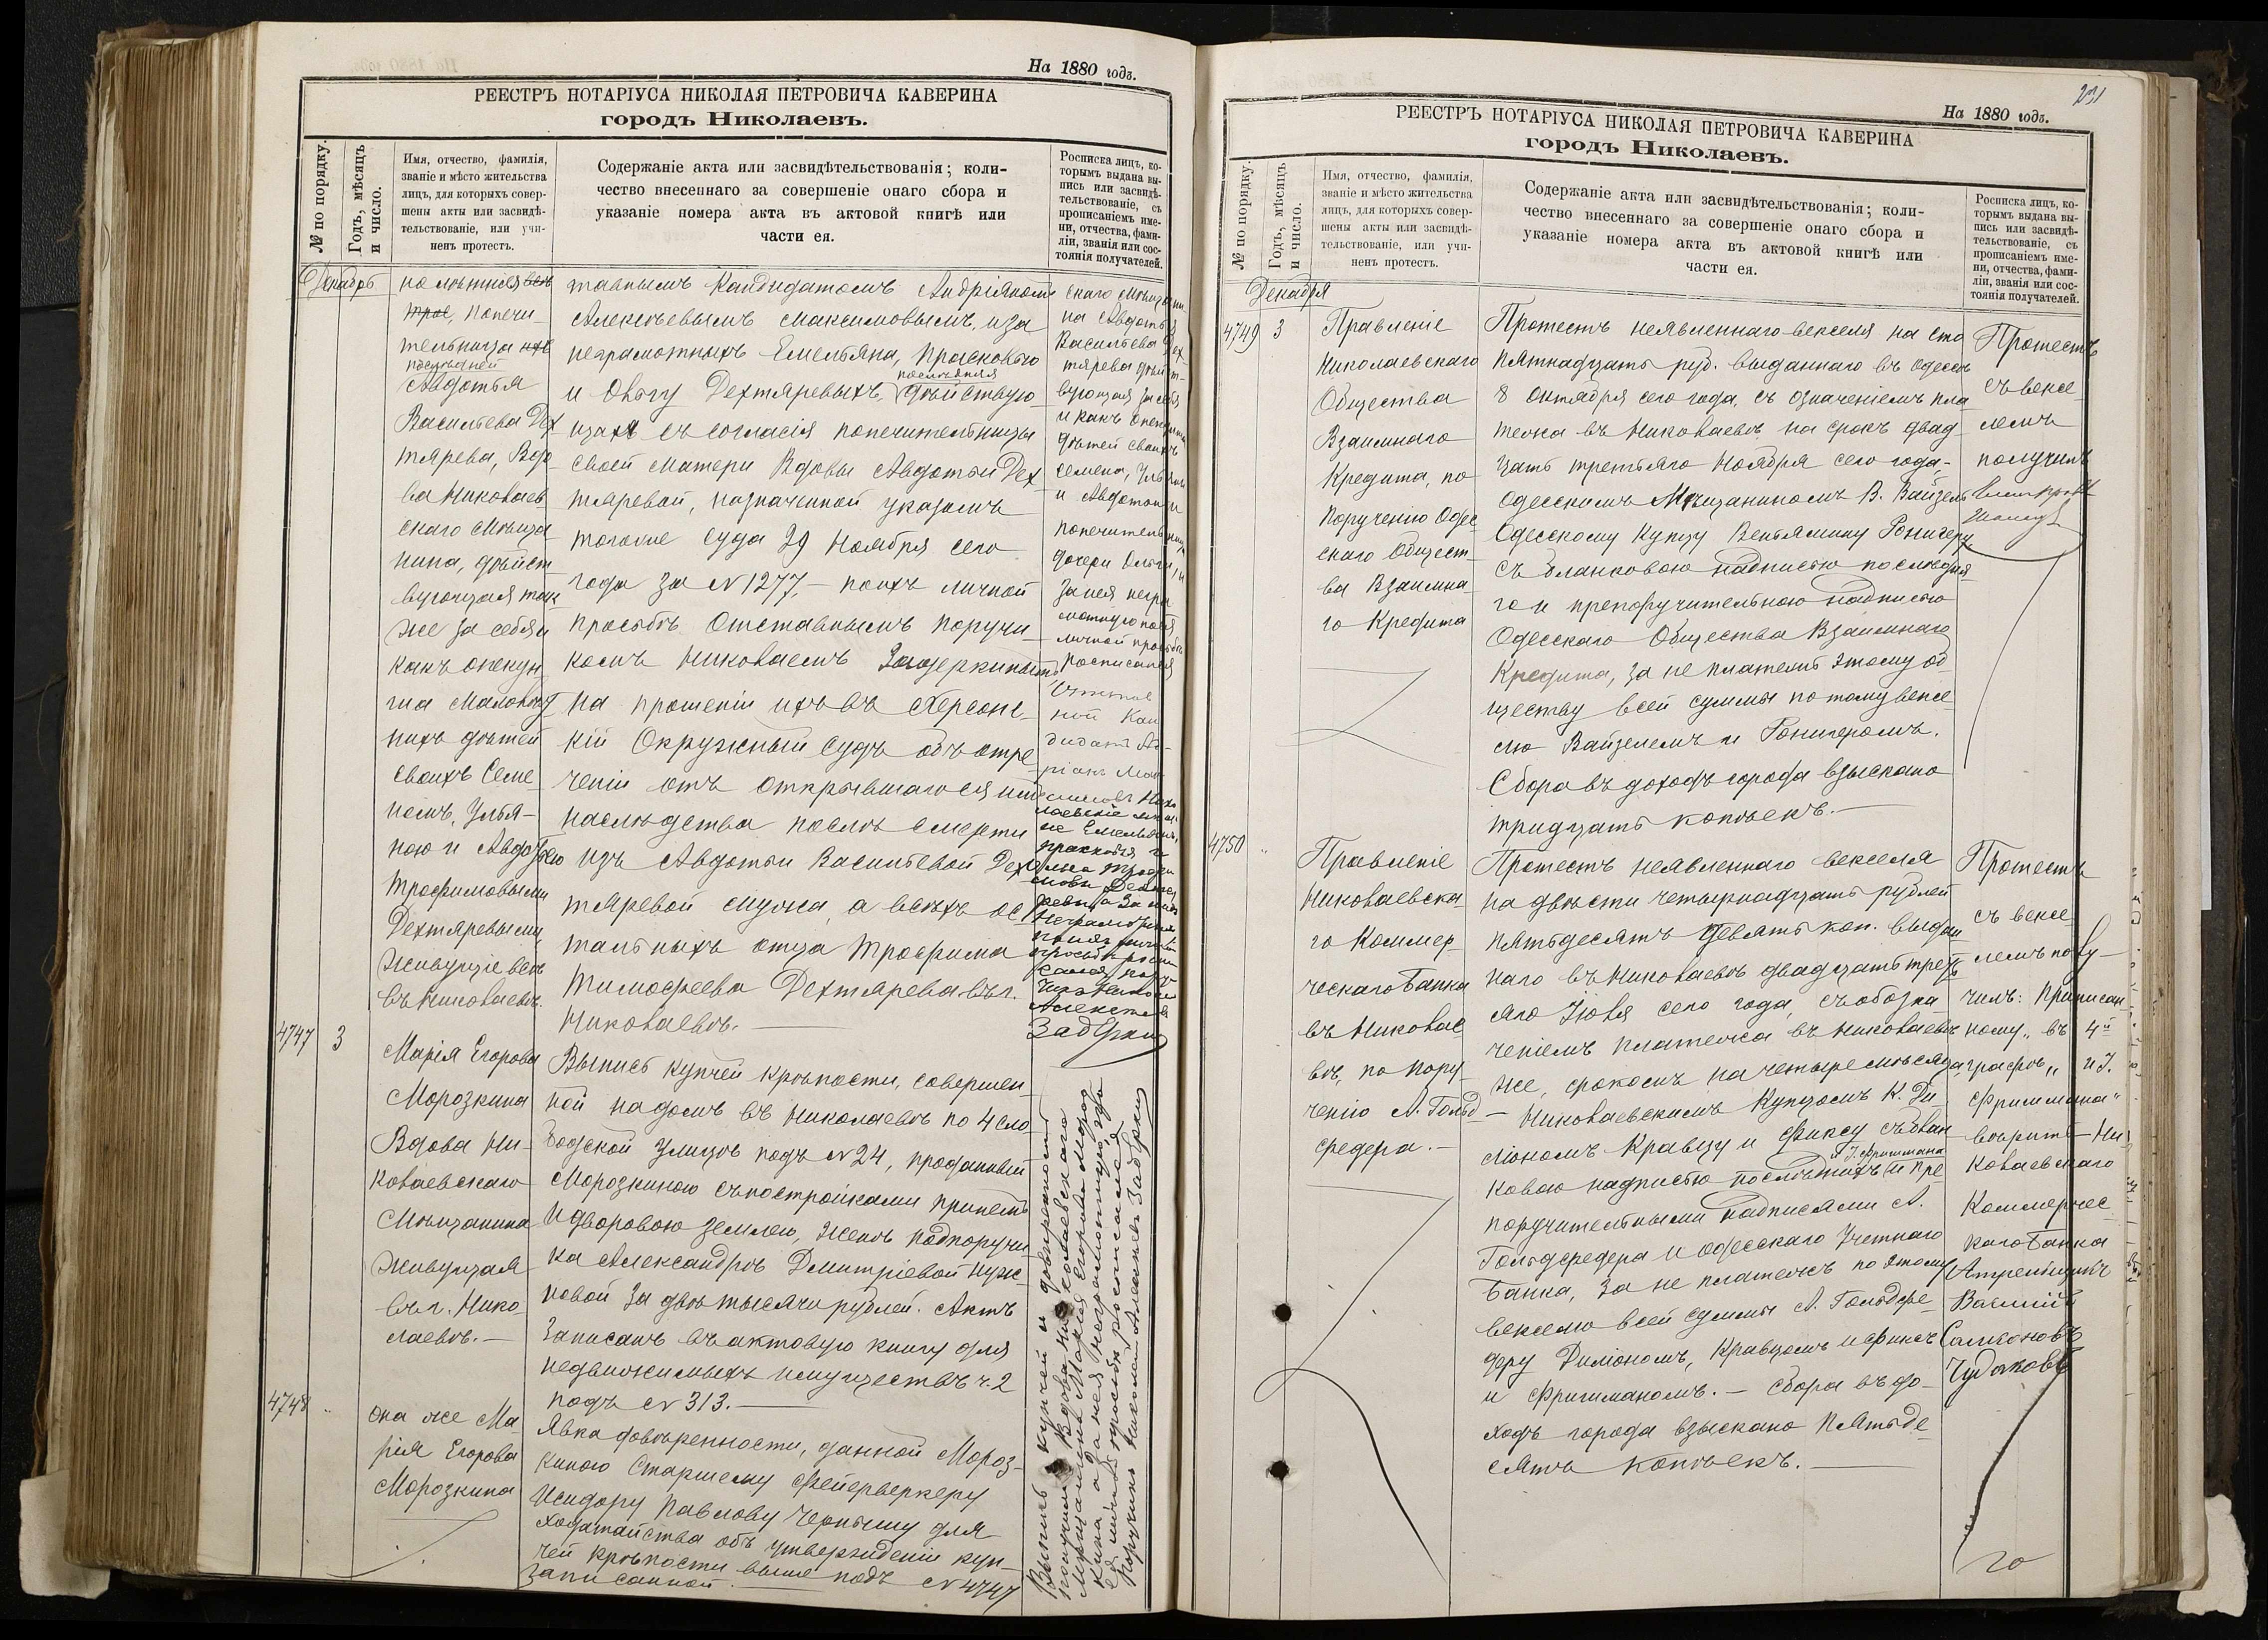 На 1880 годъ.
РЕЕСТРЪ НОТАРІУСА НИКОЛАЯ ПЕТРОВИЧА КАВЕРИНА
городъ Николаевъ.
№ по порядку.
Годъ, мѣсяцъ
и число.
Имя, отчество, фамилія,
званіе и мѣсто жительства
лицъ, для которыхъ совер-
шены акты или засвидѣ-
тельствованіе, или учи-
ненъ протестъ.
Содержаніе акта или засвидѣтельствованія; коли-
чество внесеннаго за совершеніе онаго сбора и
указаніе номера акта въ актовой книгѣ или
части ея.
Росписка лицъ, ко-
торымъ выдана вы-
пись или засвидѣ-
тельствованіе, съ
прописаніемъ име-
ни, отчества, фами-
ліи, званія или сос-
тоянія получателей.
Декабрь
попечи-
тельница
послѣдней
Авдотья
Васильева Дех
тярева, Вдо
ва Николаев
скаго мѣща
нина, дѣйст
вующая так
же за себя и
какъ опекун
ша малолѣт
нихъ дѣтей
своихъ Семе
номъ, Улья-
ною и Авдотьею
Трофимовыми
Дехтяревыми,
живущіе всѣ
въ Николаевѣ.
тавнымъ Кандидатомъ Андріяномъ
Алексѣевымъ Максимовымъ, и за
неграмотныхъ Емельяна, Прасковью
и Ольгу Дехтяревыхъ, последняя дѣйствую
щая съ согласія попечительницы
своей матери Вдовы Авдотьи Дех
тяревой, назначенной указомъ
тогоже Суда 29 Ноября сего
года за № 1277, – по ихъ личной
просьбѣ Отставнымъ Поручи
комъ Николаемъ Задеркинымъ,
на прошеніи ихъ въ Херсонс
кій Окружный Судъ объ отре
ченіи отъ открывшагося имъ
наслѣдства послѣ смерти
изъ Авдотьи Васильевой Дех
тяревой мужа, а всѣхъ ос
тальныхъ отца Трофима
Тимофеева Дехтярева въ г.
Николаевѣ.
скаго мѣщани
на Авдотья
Васильева Дех
тярева дѣйст-
вующая за себя
и какъ опекунша
дѣтей своихъ
Семена, Ульяны
и Авдотьи и
попечительница
дочери Ольги, и
за нея негра
мотную по ея
личной просьбѣ
росписался
Отстав
ной Кан
дидатъ Ан-
ріанъ Мак
симовъ Нико
лаевскіе мѣща
не Емельянъ,
Прасковья и
Ольга Трофи
мовы
а за нихъ
Неграмотныхъ
по ихъ личной
просьбѣ роспи
сался пору
чикъ Николай
Алексеевъ
Задеркинъ
4747
3
Марія Егорова
Морозкина
Вдова Ни-
колаевскаго
Мѣщанина
живущая
въ г. Нико
лаевѣ. –
Выпись купчей крѣпости, совершен
ной на домъ въ Николаевѣ по 4 Сло
бодской улицѣ подъ № 24, проданный
Морозкиною съ постройками при немъ
и дворовою землею, женѣ Подпоручи
ка Александрѣ Дмитріевой Нуж-
новой за двѣ тысячи рублей. Актъ
записанъ въ актовую книгу для
недвижимыхъ имуществъ ч. 2
подъ № 313. –
4748
"
Она же Ма
рія Егорова
Морозкина
Явка довѣренности, данной Мороз-
киною Старшему Фейерверкеру
Исидору Павлову Чернышу для
ходатайства объ утвержденіи куп-
чей крѣпости выше подъ № 4747
записанной.
Выпись купчей и довѣренность
получила Вдова Николаевскаго
Мещанина Марія Егорова Мороз
кина а за нея неграмотную, по
ея личной просьбѣ росписался
Поручикъ Николай Алексеевъ Задеркинъ
231
На 1880 годъ.
РЕЕСТРЪ НОТАРІУСА НИКОЛАЯ ПЕТРОВИЧА КАВЕРИНА
городъ Николаевъ.
№ по порядку.
Годъ, мѣсяцъ
и число.
Имя, отчество, фамилія,
званіе и мѣсто жительства
лицъ, для которыхъ совер-
шены акты или засвидѣ-
тельствованіе, или учи-
ненъ протестъ.
Содержаніе акта или засвидѣтельствованія; коли-
чество внесеннаго за совершеніе онаго сбора и
указаніе номера акта въ актовой книгѣ или
части ея.
Росписка лицъ, ко-
торымъ выдана вы-
пись или засвидѣ-
тельствованіе, съ
прописаніемъ име-
ни, отчества, фами-
ліи, званія или сос-
тоянія получателей.
Декабря
4749
3
Правленіе
Николаевскаго
Общества
Взаимнаго
Кредита, по
порученію Одес
скаго Общест-
ва Взаимна
го Кредита
Протестъ неявленнаго векселя на сто
пятнадцать руб. выданнаго въ Одессѣ
8 Октября сего года, съ означеніемъ пла
тежа въ Николаевѣ на срокъ двад
цать третьяго Ноября сего года,
Одесскимъ Мѣщаниномъ В. Вайзель
Одесскому Купцу Веніамину Ронигеру
съ бланковою надписью последня
го и препоручительною надписью
Одесскаго Общества Взаимнаго
Кредита, за не платежъ этому об
ществу всей суммы по тому вексе
лю Вайзелемъ и Ронигеромъ.
Сбора въ доходъ города взыскано
тридцать копѣекъ. –
Протестъ
съ вексе
лемъ
получилъ
4750
"
Правленіе
Николаевска
го Коммер-
ческаго Банка
въ Николае
вѣ, по пору-
ченію А. Гольд
федера. –
Протестъ неявленнаго векселя
на двѣсти четырнадцать рублей
пятьдесятъ девять коп. выдан
наго въ Николаевѣ двадцать треть
яго Іюля сего года, съ обозна
ченіемъ платежа въ Николаевѣ
же, срокомъ на четыре мѣсяца,
Николаевскимъ Купцомъ К. Ди-
міономъ Кравцу и Фиксу съ блан
ковою надписью послѣднихъ и І. Фришмана и пре
поручительными надписями А.
Гольдфедера и Одесскаго Учетнаго
Банка, за не платежъ по этому
векселю всей суммы А. Гольдфе-
деру Диміономъ, Кравцомъ и Фиксъ
и Фришманомъ. – Сбора въ до-
ходъ города взыскано пятьде
сятъ копѣекъ. –
Протестъ
съ вексе
лемъ полу-
чилъ: Приписан
ному „ въ 4й
графѣ „ и І.
Фришмана"
вѣрить – Ни
колаевскаго
Коммерчес
каго Банка
Артельщикъ
Василій
Самсоновъ
Чудаковъ